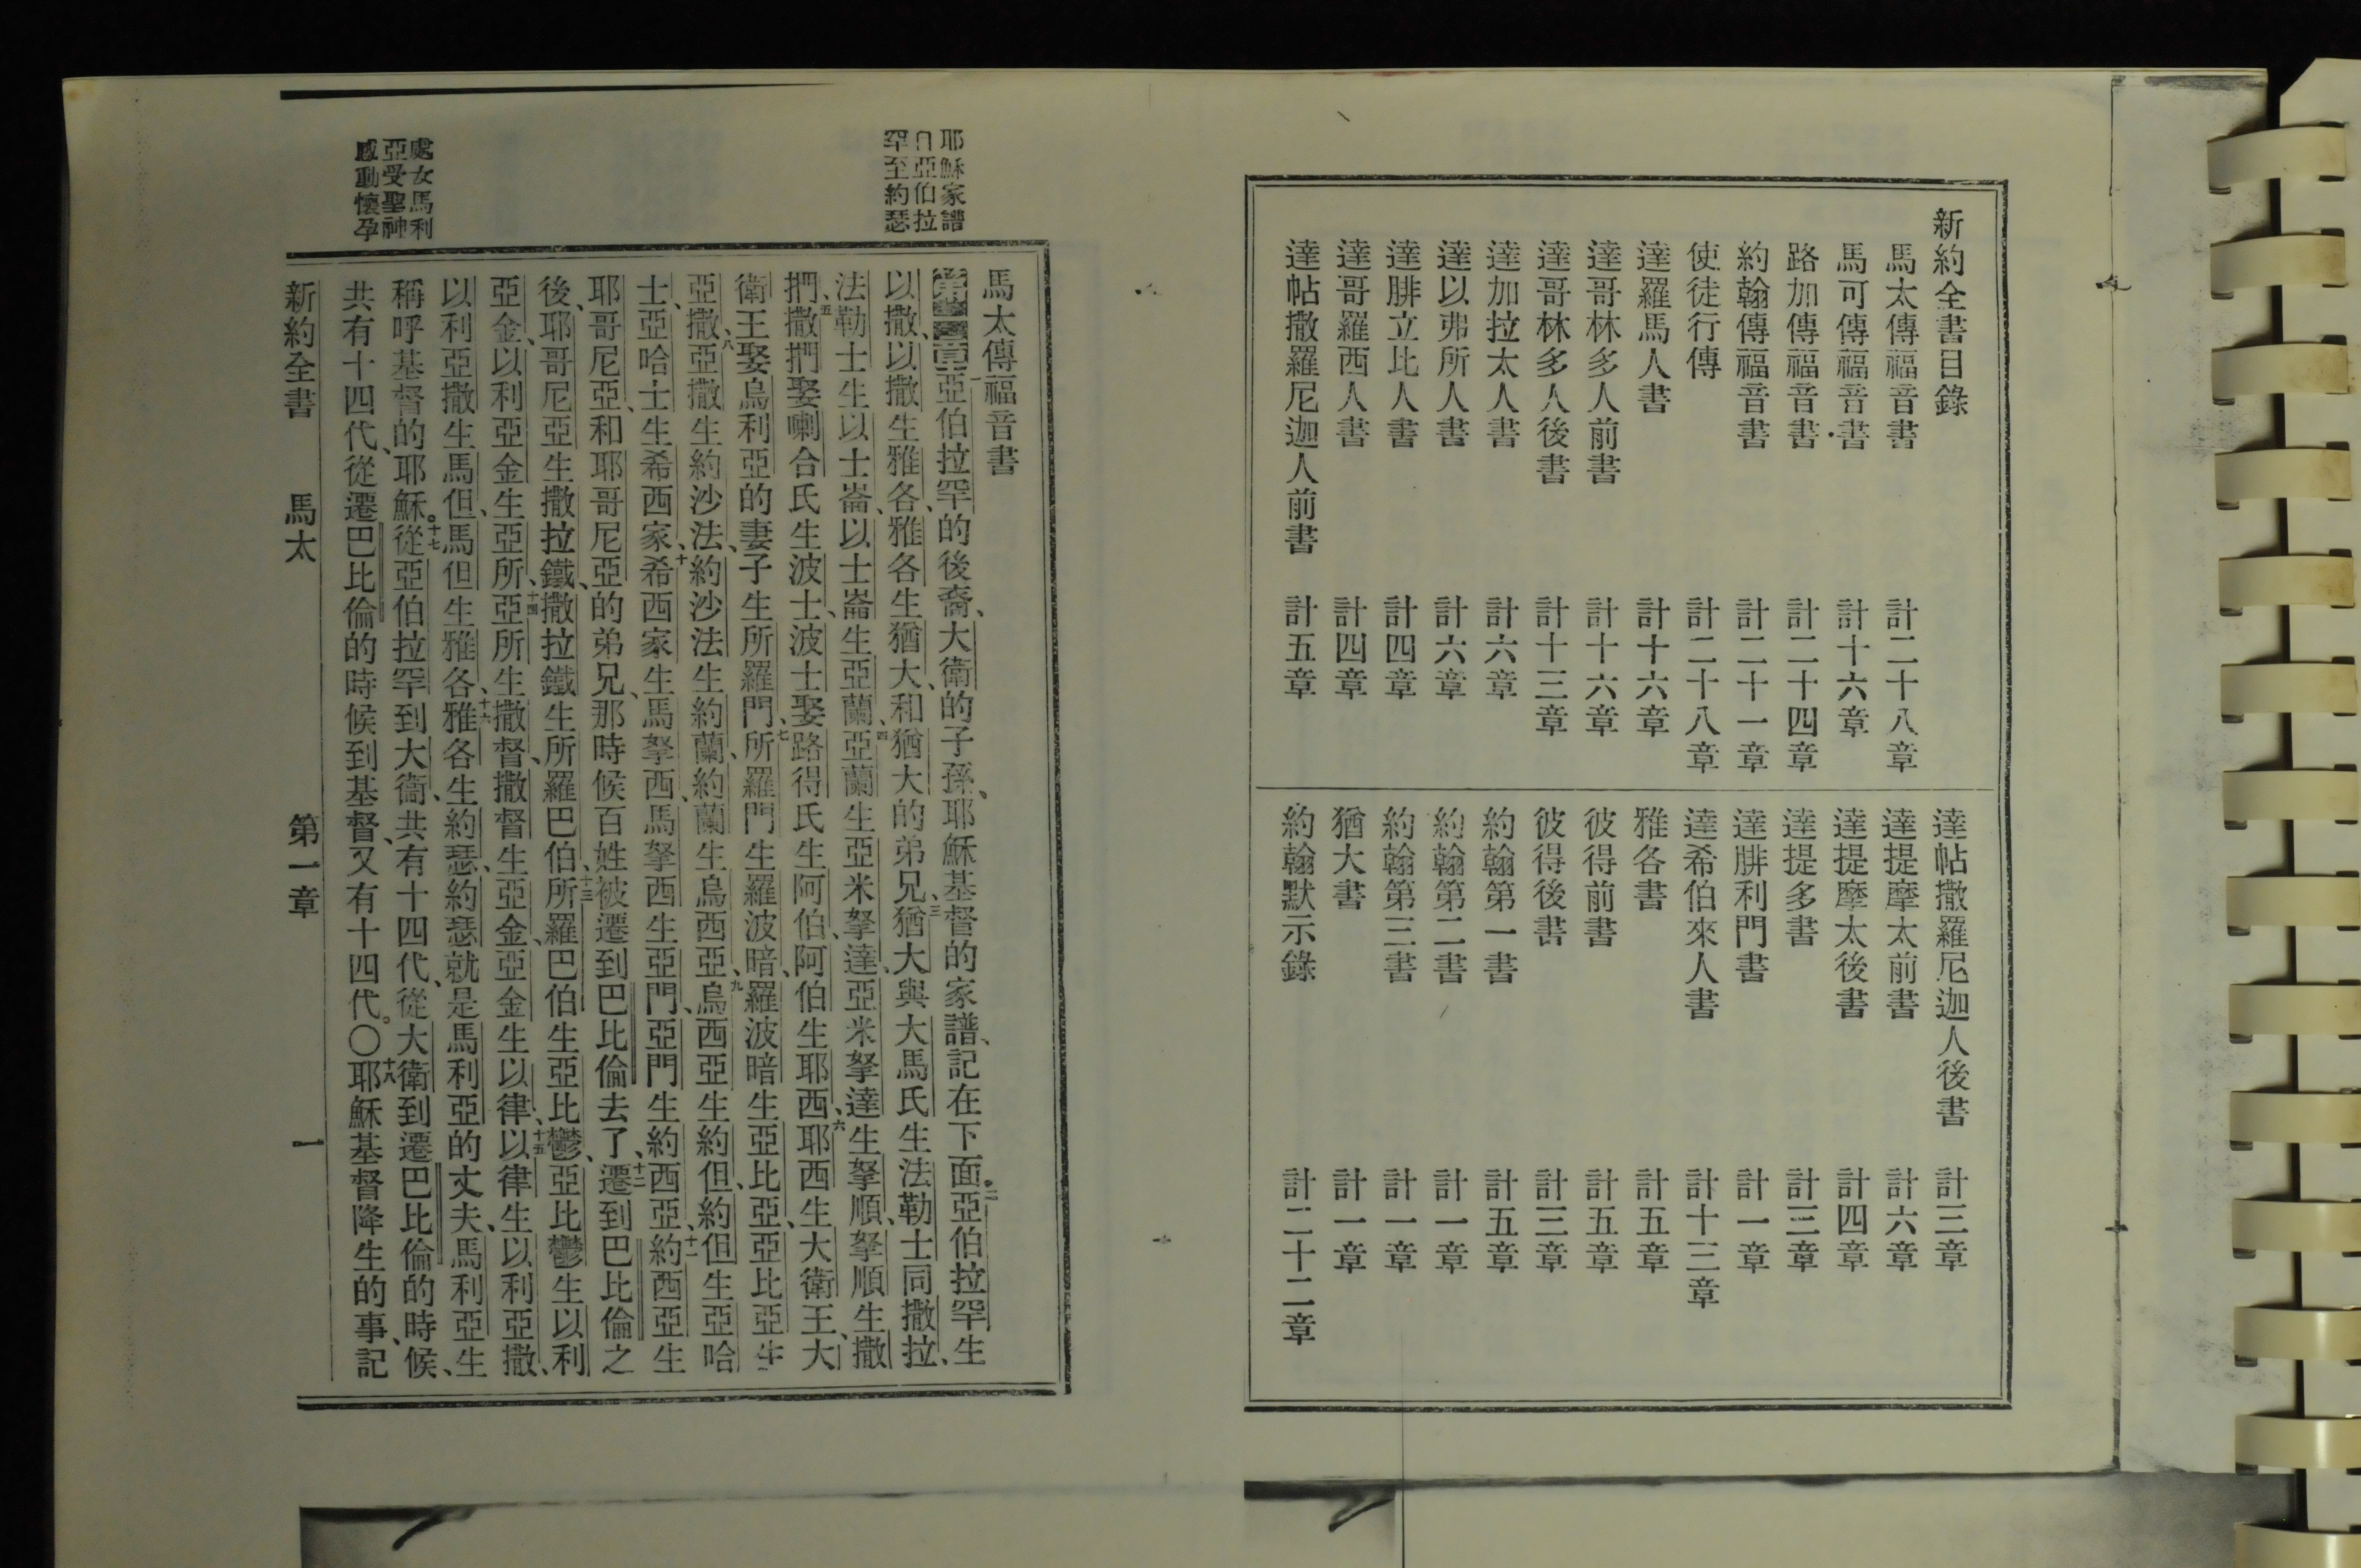 新約全書目錄
馬太傳福音書 計二十八章
馬可傳福音書 計十六章
路加傳福音書 計二十四章
約翰傳福音書 計二十一章
使徒行傳 計二十八章
達羅馬人書 計十六章
達哥林多人前書 計十六章
達哥林多人後書 計十三章
達加拉太人書 計六章
達以弗所人書 計六章
達腓立比人書 計四章
達哥羅西人書 計四章
達帖撒羅尼迦人前書 計五章
達帖撒羅尼迦人後書 計三章
達提摩太前書 計六章
達提摩太後書 計四章
達提多書 計三章
達腓利門書 計一章
達希伯來人書 計十三章
雅各書 計五章
彼得前書 計五章
彼得後書 計三章
約翰第一書 計五章
約翰第二書 計一章
約翰第三書 計一章
猶大書 計一章
約翰默示錄 計二十二章
耶穌家譜
自亞伯拉
罕至約瑟
處女馬利
亞受聖神
感動懷孕
馬太傳福音書
第一章一亞伯拉罕的後裔、大衛的子孫、耶穌基督的家譜、記在下面。二亞伯拉罕生
以撒、以撒生雅各、雅各生猶大、和猶大的弟兄、三猶大與大馬氏生法勒士同撒拉、
法勒士生以士崙、以士崙生亞蘭、四亞蘭生亞米拏達、亞米拏達生拏順、拏順生撒
捫、五撒捫娶喇合氏生波士、波士娶路得氏生阿伯、阿伯生耶西、六耶西生大衛王、大
衛王娶烏利亞的妻子生所羅門、七所羅門生羅波暗、羅波暗生亞比亞、亞比亞生
亞撒、八亞撒生約沙法、約沙法生約蘭、約蘭生烏西亞、九烏西亞生約但、約但生亞哈
士、亞哈士生希西家、十希西家生馬拏西、馬拏西生亞門、亞門生約西亞、十一約西亞生
耶哥尼亞、和耶哥尼亞的弟兄、那時候百姓被遷到巴比倫去了、十二遷到巴比倫之
後、耶哥尼亞生撒拉鐵、撒拉鐵生所羅巴伯、十三所羅巴伯生亞比鬱、亞比鬱生以利
亞金、以利亞金生亞所、十四亞所生撒督、撒督生亞金、亞金生以律、十五以律生以利亞撒、
以利亞撒生馬但、馬但生雅各、十六雅各生約瑟、約瑟就是馬利亞的丈夫、馬利亞生
稱呼基督的耶穌。十七從亞伯拉罕到大衛、共有十四代、從大衛到遷巴比倫的時候、
共有十四代、從遷巴比倫的時候到基督、又有十四代。〇十八耶穌基督降生的事、記
新約全書 馬太 第一章 一